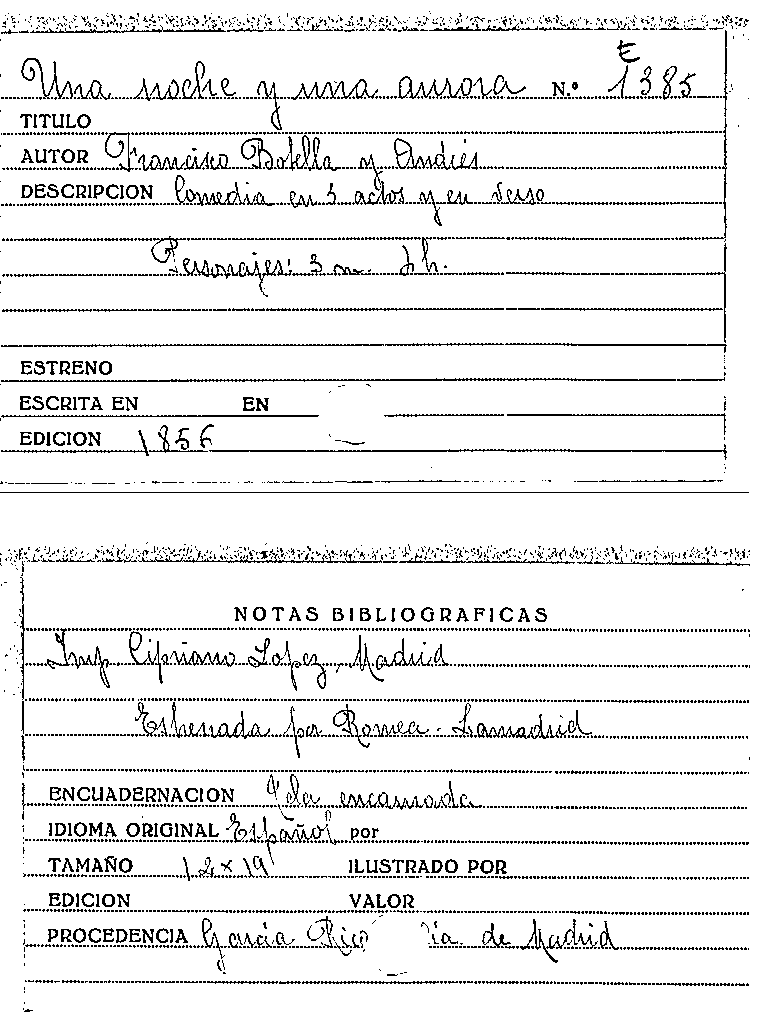 E
Una noche y una aurora N.º 1385
TITULO
AUTOR Francisco Botella y Andrés
DESCRIPCION Comedia en 3 actos y en verso
Personajes: 3 m. h.
ESTRENO
ESCRITA EN EN
EDICION 1856
NOTAS BIBLIOGRAFICAS
Imp Cipriano Lopez, Madrid
Estrenada por Romea - Lamadrid
ENCUADERNACION Tela encarnada
IDIOMA ORIGINAL Español por
TAMAÑO 12 x 19 ILUSTRADO POR
EDICION VALOR
PROCEDENCIA García Rico ía de Madrid